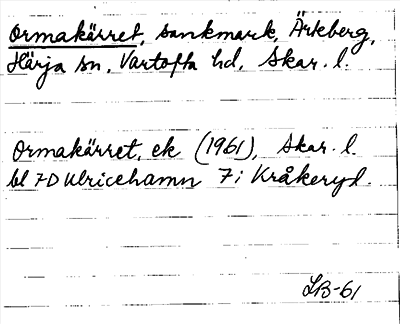 Ormakärret, sankmark, Ärteberg,
Härja sn, Vartofta hd, Skar. l.
Ormakärret, ek (1961), Skar. l.
bl 7D Ulricehamn 7i Kråkeryd.
LB-61